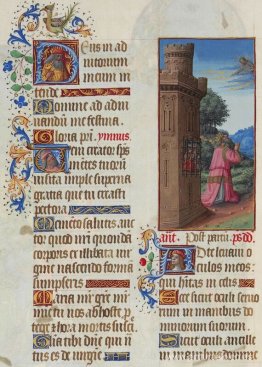 Eus in ad
iutorium
meum in
tende
Domine ad adiu
uandum me festina
Gloria pri. ymnus.
Veni creator sps
mentes tuorū
uisita imple superna
gratia que tu creasti
pectora
Memento salutis auc
tor quod nri quondā
corporis ex illibata uir
gine nascendo formā
sumpseris
Maria mr̄ grē mr̄
mīe tu nos ab hoste p
tege & hora mortis susci
Gloria tibi dn̄e qui na
tus es de uirgīe
ant. Post partū. ps. dd
Ad te leuaui o
culos meos:
qui hītas in celis
Ecce sicut oculi seruo
rum in manibus do
minorum suorum.
Sicut oculi ancille
in manibus domine